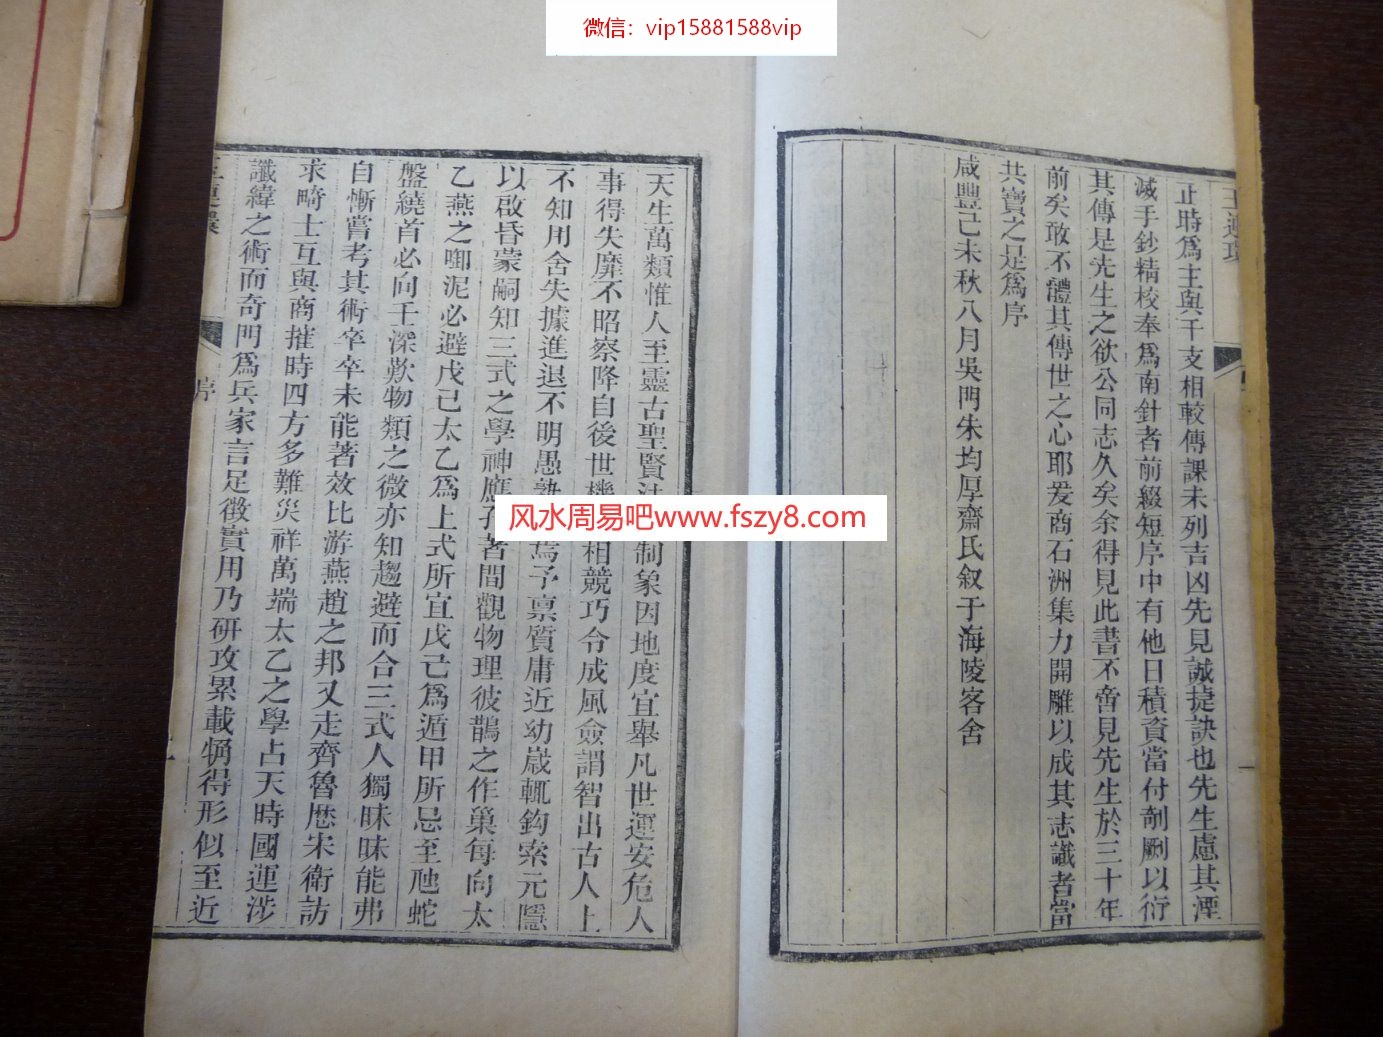 微信：vip15881588vip
止時爲主與干支相較傳課未列吉凶先見誠捷訣也先生慮其湮
滅手鈔精校奉爲南針者前綴短序中有他日積資當付剞劂以衍
其傳是先生之欲公同志久矣余得見此書不啻見先生於三十年
前矣敢不體其傳世之心耶爰商石洲集力開雕以成其志識者當
共寶之是爲序
咸豐己未秋八月吳門朱均厚齋氏叙于海陵客舍
風水周易吧www.fszy8.com
天生萬類惟人至靈古聖賢法制象因地度宜舉凡世運安危人
事得失靡不昭察降自後世機相競巧令成風僉謂智出古人上
不知用舍失據進退不明愚孰焉予禀質庸近幼嵗輒鈎索元隱
以啟昏蒙嗣知三式之學神應孔著間觀物理彼鵲之作巢每向太
乙燕之啣泥必避戊己太乙爲上式所宜戊己爲遁甲所忌至虺蛇
盤繞首必向壬深歎物類之微亦知趨避而合三式人獨昧昧能弗
自慚嘗考其術卒卒未能著效比游燕趙之邦又走齊魯歷宋衛訪
求畸士互與商搉時四方多難災祥萬端太乙之學占天時國運涉
讖緯之術而奇門爲兵家言足徵實用乃研攻累載觕得形似至近
序